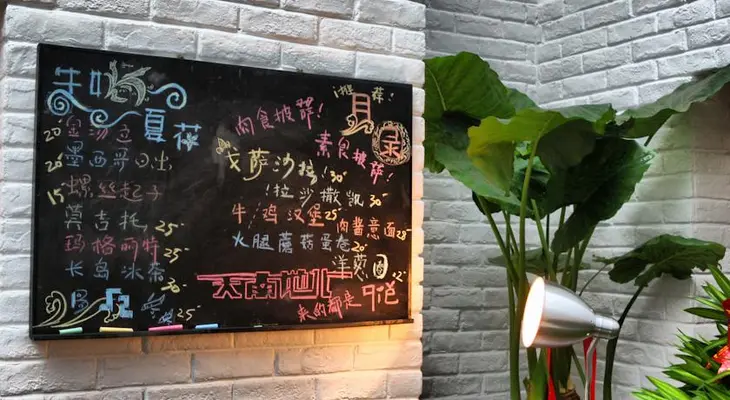 特
夏夜
20 金汤力
20 墨西哥日出
15 螺丝起子
莫吉托 25
玛格丽特 25
长岛冰茶 30
25
推荐
目录
肉食披萨!
素食披萨!
戈萨沙拉! 30
!拉沙撒凯 30
牛/鸡汉堡 25
肉酱意面 25
火腿蘑菇蛋卷 20
洋葱圈 12
天南地北
来的都是